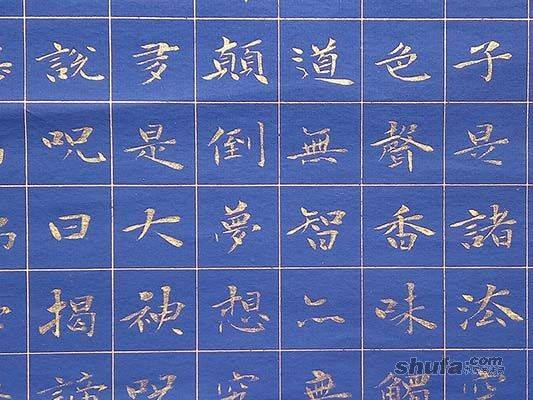 子是諸法空
色聲香味觸
道無智亦無
顛倒夢想究
多是大神呪
說呪曰揭諦
shufa.com